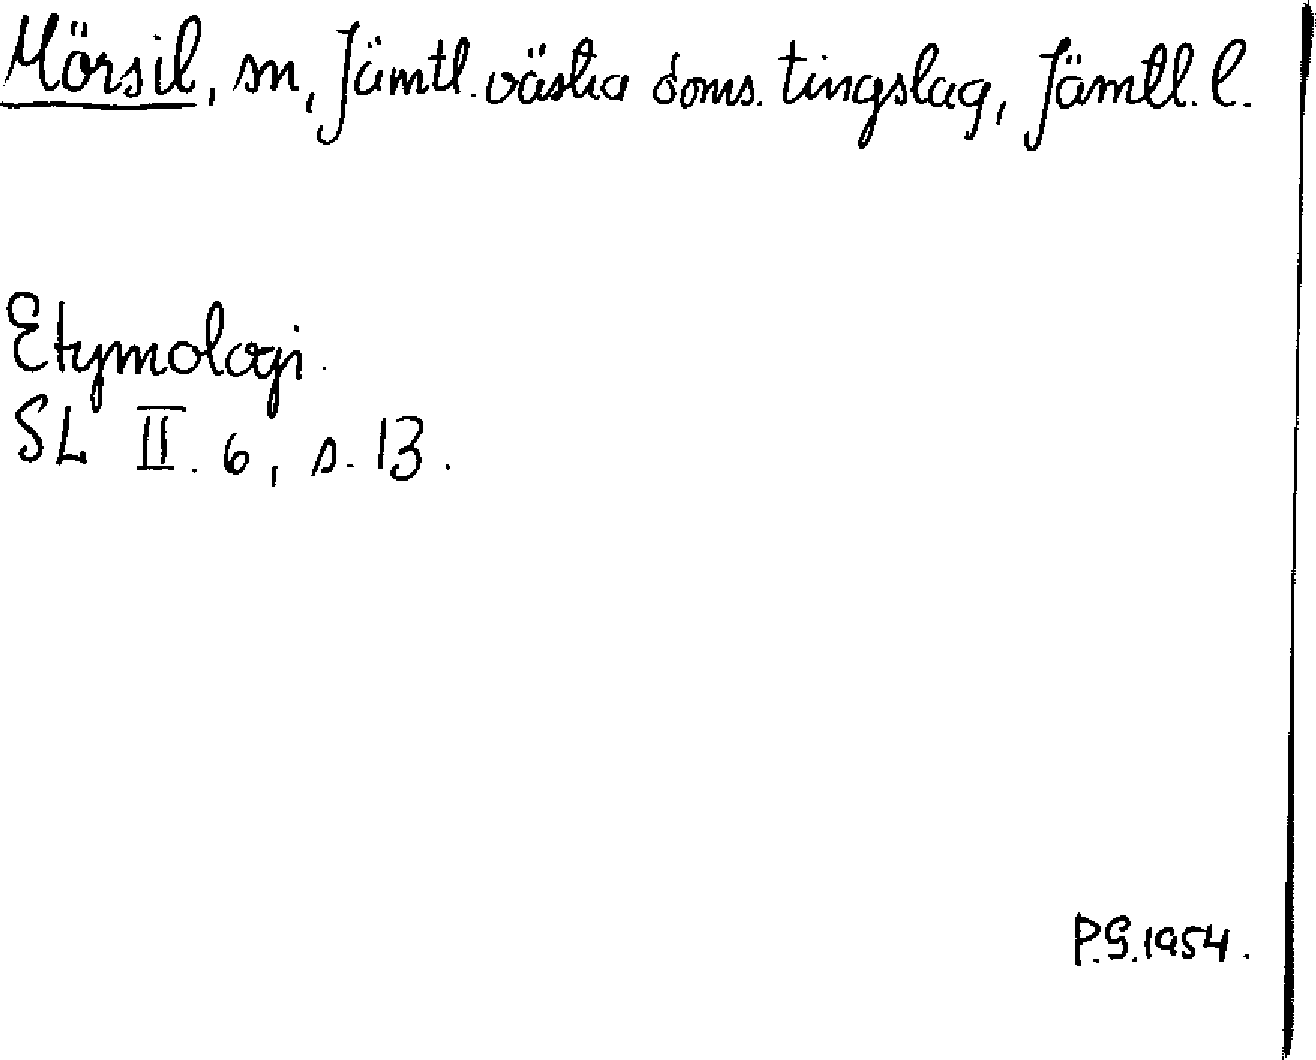 Mörsil, sn, Jämtl. västra doms. tingslag, Jämtl. l.
Etymologi.
SL II. 6, s. 13.
P.G. 1954.